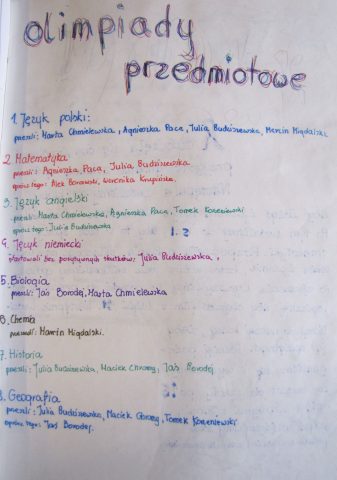 olimpiady
przedmiotowe
1. Język polski:
przeszli: Marta Chmielewska, Agnieszka Paca, Julia Budziszewska, Marcin Migdalski.
2. Matematyka
przeszli: Agnieszka Paca, Julia Budziszewska
oprócz tego: Alek Borowski, Weronika Krupińska,
3. Język angielski
przeszli: Marta Chmielewska, Agnieszka Paca, Tomek Korzeniewski
oprócz tego: Julia Budziszewska
4. Język niemiecki
startowali bez pozytywnych skutków: Julia Budziszewska,
5. Biologia
przeszli: Jaś Borodej, Marta Chmielewska
6. Chemia
przeszedł: Marcin Migdalski.
7. Historia
przeszli: Julia Budziszewska, Maciek Chrzony, Jaś Borodej
8. Geografia
przeszli: Julia Budziszewska, Maciek Tomek Korzeniewski
oprócz tego: Jaś Borodej.